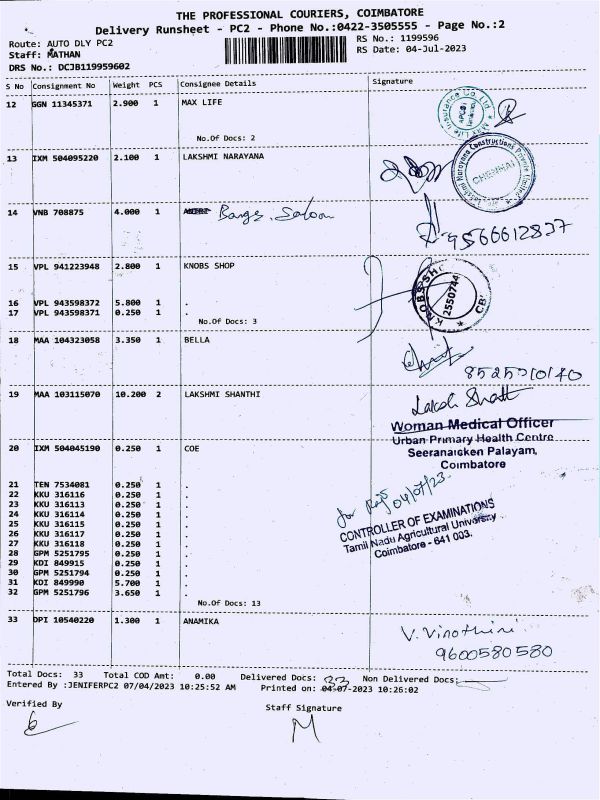 THE PROFESSIONAL COURIERS, COIMBATORE
Delivery Runsheet - PC2 - Phone No.:0422-3505555 - Page No.:2
Route: AUTO DLY PC2
RS No.: 1199596
Staff: MATHAN
RS Date: 04-Jul-2023
DRS No.: DCJB119959602
S No Consignment No Weight PCS Consignee Details Signature
12 GGN 11345371 2.900 1 MAX LIFE
Max Life Insurance Co. Ltd
No.Of Docs: 2
13 IXM 504095220 2.100 1 LAKSHMI NARAYANA
Lakshmi Narayana Constructions Private Limited
CHENNAI
14 VNB 708875 4.000 1
9566612837
15 VPL 941223948 2.800 1 KNOBS SHOP
KNOBS SHOP
2550744
CBE
16 VPL 943598372 5.800 1 .
17 VPL 943598371 0.250 1 .
No.Of Docs: 3
18 MAA 104323058 3.350 1 BELLA
8525910140
19 MAA 103115070 10.200 2 LAKSHMI SHANTHI
Woman Medical Officer
Urban Primary Health Centre
Seeranaicken Palayam,
Coimbatore
20 IXM 504045190 0.250 1 COE
21 TEN 7534081 0.250 1 .
22 KKU 316116 0.250 1 .
23 KKU 316113 0.250 1 .
24 KKU 316114 0.250 1 .
25 KKU 316115 0.250 1 .
26 KKU 316117 0.250 1 .
27 KKU 316118 0.250 1 .
28 GPM 5251795 0.250 1 .
29 KDI 849915 0.250 1 .
30 GPM 5251794 0.250 1 .
31 KDI 849990 5.700 1 .
32 GPM 5251796 3.650 1 .
for 04/07/23.
CONTROLLER OF EXAMINATIONS
Tamil Nadu Agricultural University
Coimbatore - 641 003.
No.Of Docs: 13
33 DPI 10540220 1.300 1 ANAMIKA
V. Vinothini
9600580580
Total Docs: 33 Total COD Amt: 0.00 Delivered Docs: 33 Non Delivered Docs:
Entered By :JENIFERPC2 07/04/2023 10:25:52 AM Printed on: 04-07-2023 10:26:02
Verified By
Staff Signature
M